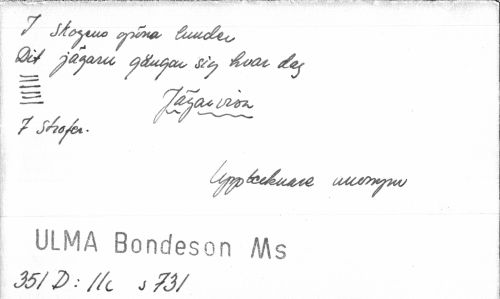 I skogens gröna lunder
Dit jägarn gångar sig hvar dag
Jägarvisa
7 strofer.
Upptecknare anonym
ULMA Bondeson Ms
351 D: 11c s 731